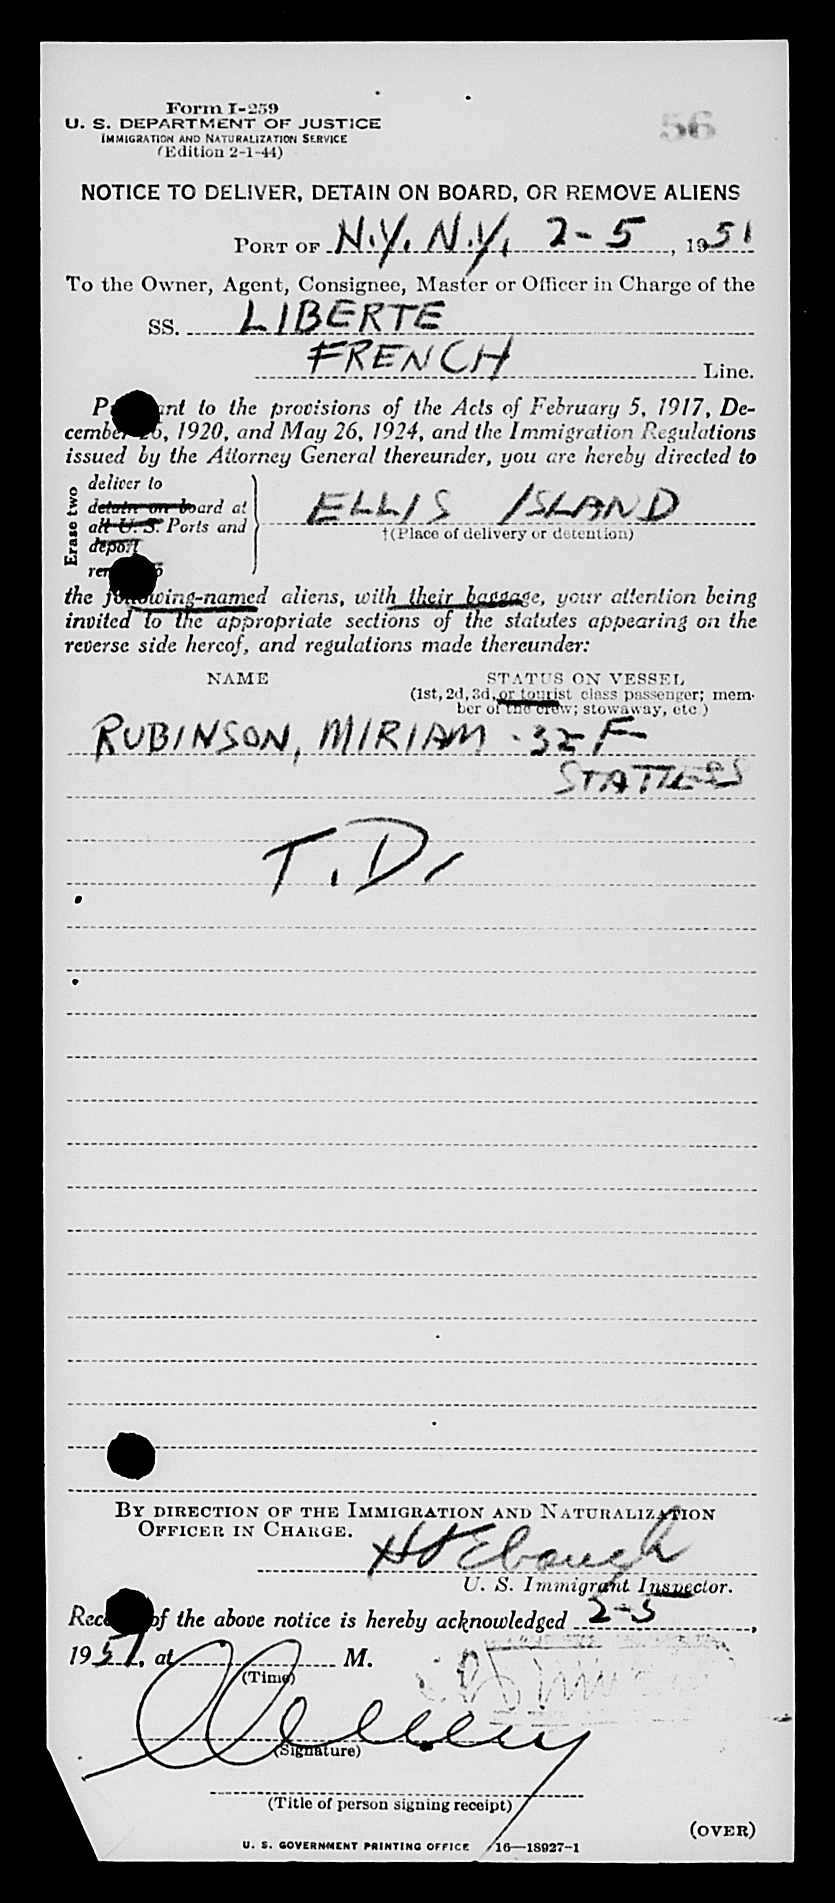 Form I-259
U. S. DEPARTMENT OF JUSTICE
IMMIGRATION AND NATURALIZATION SERVICE
(Edition 2-1-44)
56
NOTICE TO DELIVER, DETAIN ON BOARD, OR REMOVE ALIENS
PORT OF N.Y. N.Y. 2-5, 1951
To the Owner, Agent, Consignee, Master or Officer in Charge of the
SS. LIBERTE
FRENCH Line.
to the provisions of the Acts of February 5, 1917, De-
cember 26, 1920, and May 26, 1924, and the Immigration Regulations
issued by the Attorney General thereunder, you are hereby directed to
Erase two
deliver to
detain on board at
all U. S. Ports and
deport
ELLIS ISLAND
†(Place of delivery or detention)
the following-named aliens, with their baggage, your attention being
invited to the appropriate sections of the statutes appearing on the
reverse side hereof, and regulations made thereunder:
NAME
STATUS ON VESSEL
(1st, 2d, 3d, or tourist class passenger; mem-
ber of the crew; stowaway, etc.)
RUBINSON, MIRIAM - 32 F
STATLESS
T.D.
BY DIRECTION OF THE IMMIGRATION AND NATURALIZATION
OFFICER IN CHARGE.
U. S. Immigrant Inspector.
of the above notice is hereby acknowledged 2-5,
1951, at M.
(Time)
(Signature)
(Title of person signing receipt)
(OVER)
U. S. GOVERNMENT PRINTING OFFICE 16—18927-1